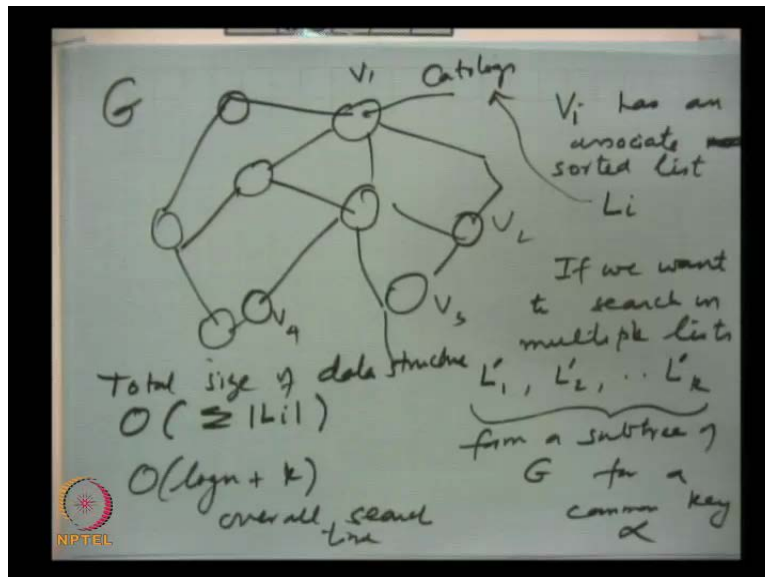 G
V1 Catalogs
Vi has an
associate
sorted list
Li
V2
V3
V4
If we want
to search in
multiple lists
L'1, L'2, .. L'k
form a subtree of
G for a
common key
α
Total size of data structure
O( Σ |Li| )
O(logn + k)
overall search
time
NPTEL